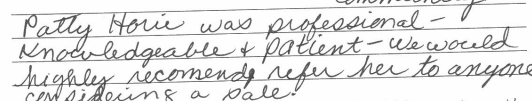 Patty Horie was professional -
Knowledgeable & patient - We would
highly recomend & refer her to anyone
considering a sale.